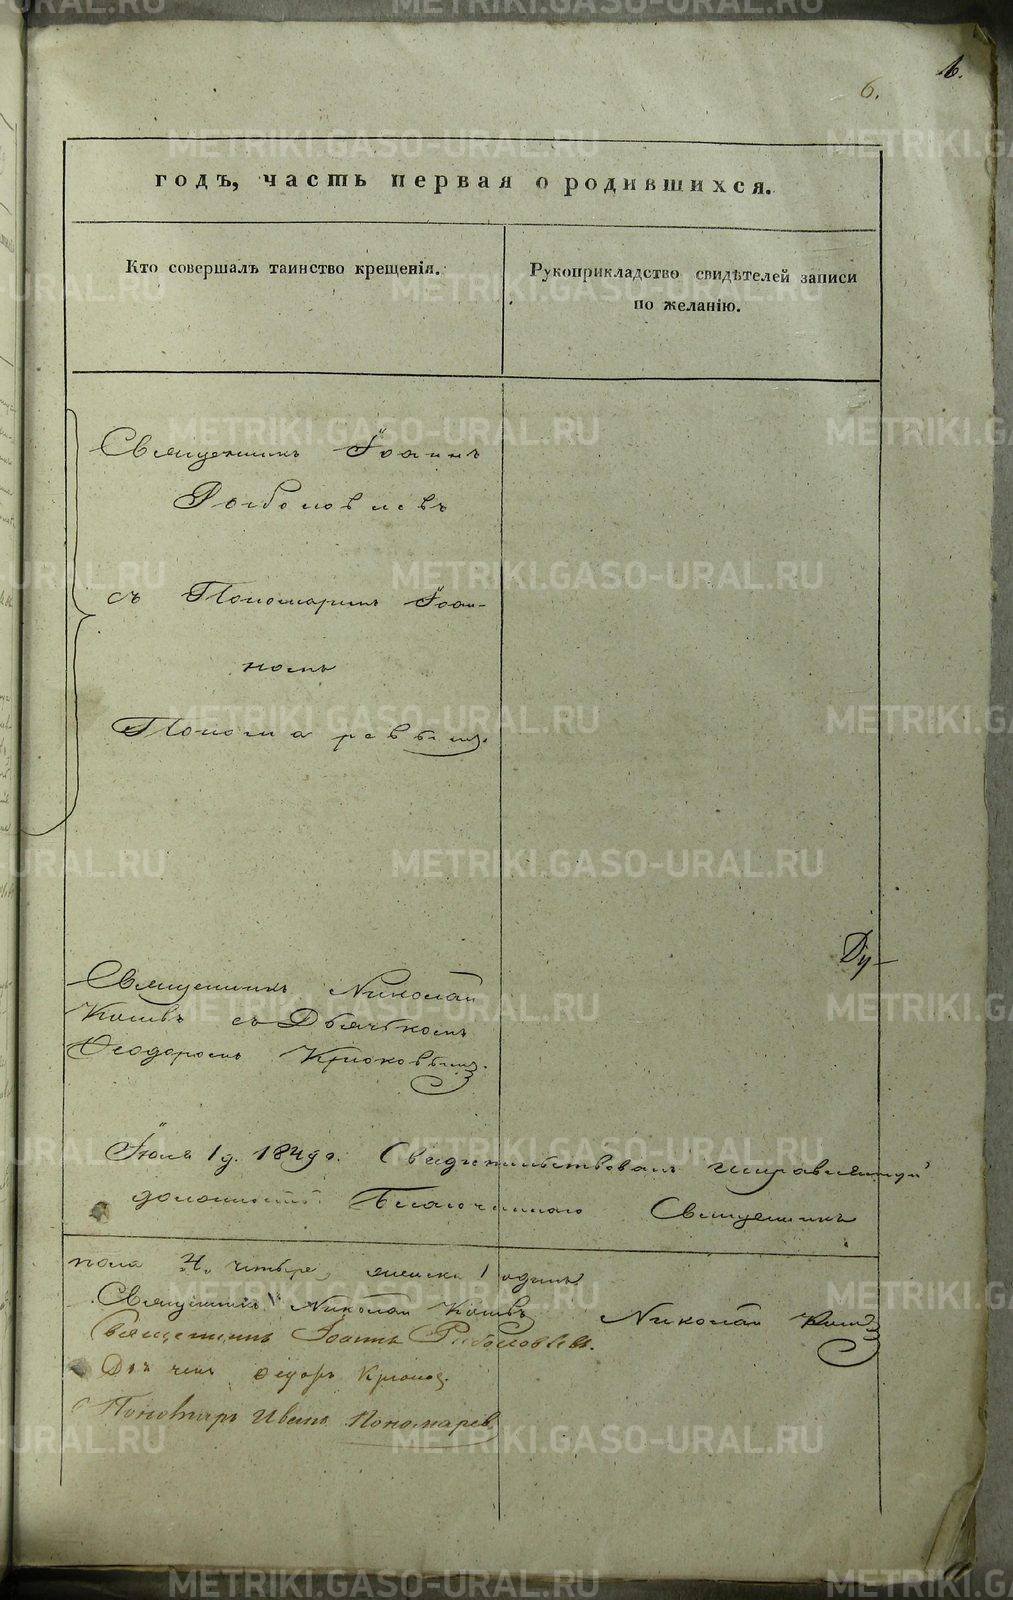 6.
годъ, часть первая о родившихся.
Кто совершалъ таинство крещенія.
Рукоприкладство свидѣтелей записи
по желанію.
Священникъ Іоаннъ
Рыболовлевъ
съ Пономаремъ Іоан-
номъ
Пономаревымъ.
Ду-
Священникъ Николай
съ Дьячкомъ
Ѳеодоромъ Крюковымъ.
Іюля 1 д. 1849 г. Свидетельствовалъ исправляющій
должность Благочиннаго Священникъ
пола 4. четыре, женска 1 одинъ
Священникъ Николай
Николай
Священникъ Іоаннъ Рыболовлевъ.
Дьячекъ Ѳедоръ Крюковъ.
Пономарь Иванъ Пономаревъ
METRIKI.GASO-URAL.RU